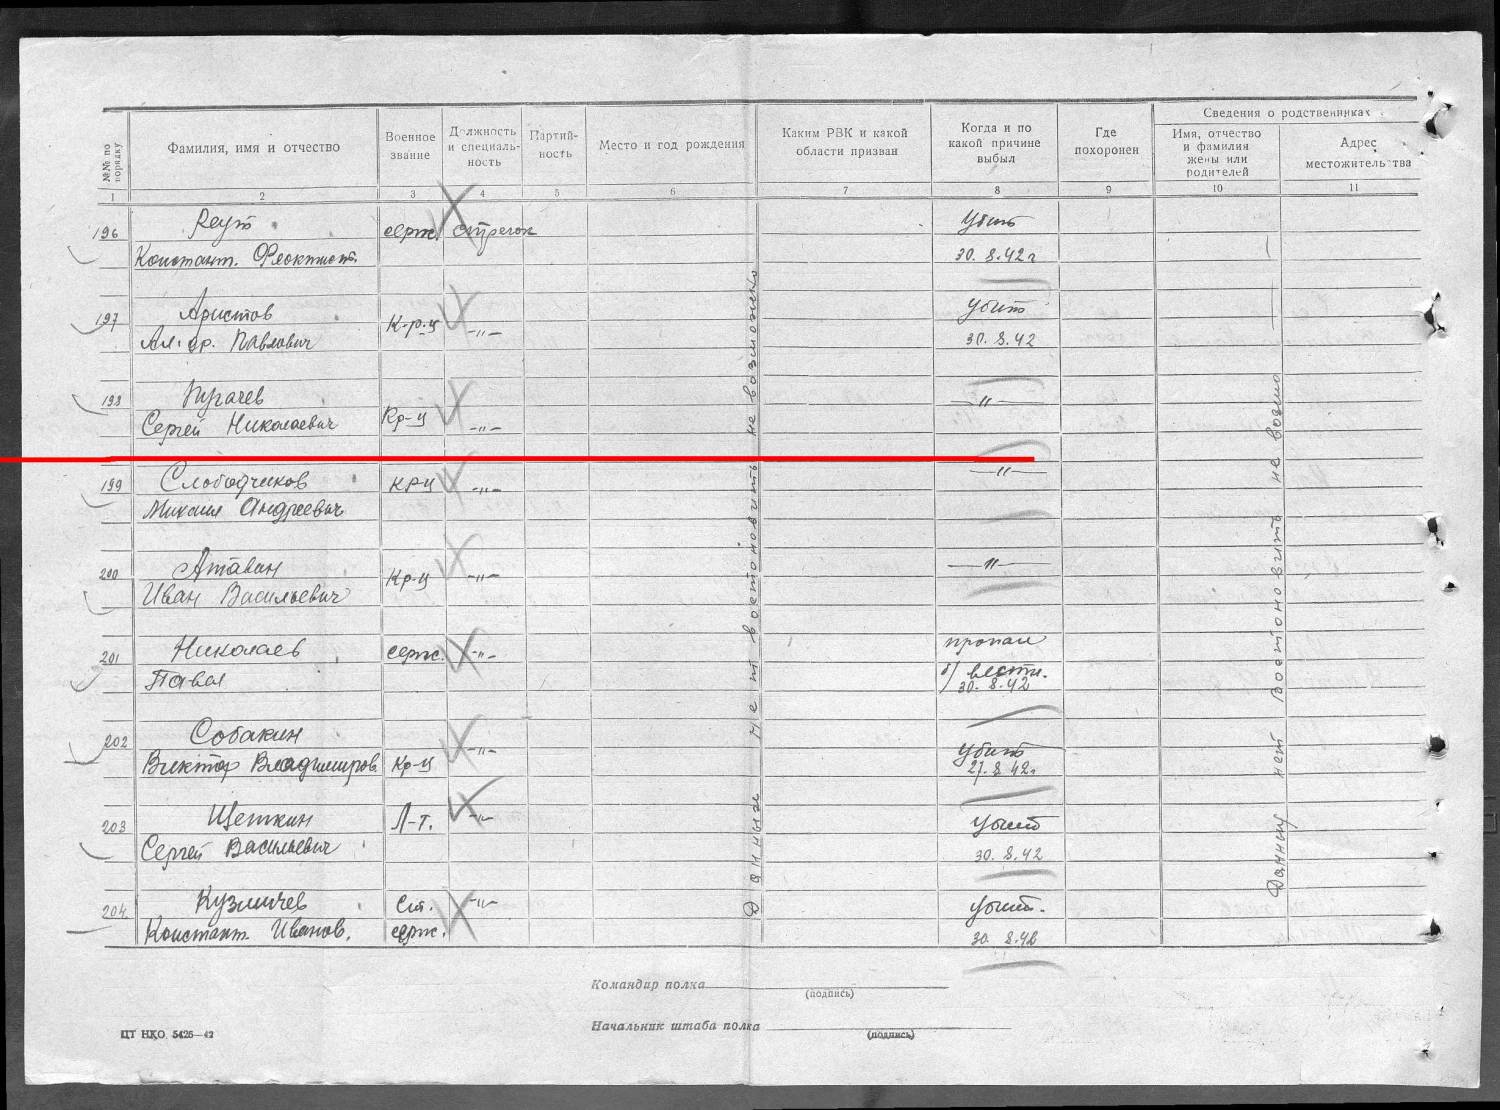 №№ по порядку
Фамилия, имя и отчество
Военное звание
Должность и специаль-ность
Партий-ность
Место и год рождения
Каким РВК и какой области призван
Когда и по какой причине выбыл
Где похоронен
Сведения о родственниках
Имя, отчество и фамилия жены или родителей
Адрес местожительства
1 2 3 4 5 6 7 8 9 10 11
196 Реут серж. стрелок Убит
Констант. Феоктист. 30.8.42г
197 Аристов К-р-ц —"— убит
Ал-др. Павлович 30.8.42
198 Пугачев Кр-ц —"— —"—
Сергей Николаевич
199 Слободчиков КР-ц —"— —"—
Михаил Андреевич
200 Атаван Кр-ц —"— —"—
Иван Васильевич
201 Николаев серж. —"— пропал
Павел б/вести. 30.8.42
202 Собакин —"— Убит
Виктор Владимиров. Кр-ц 27.8.42г
203 Щеткин Л-т. —"— Убит
Сергей Васильевич 30.8.42
204 Кузмичев Ст. —"— убит.
Констант. Иванов. серж. 30.8.42
Данных нет востоновить не возможно
Данных нет востоновить не возмо
Командир полка
(подпись)
Начальник штаба полка
(подпись)
ЦТ НКО 5426—42